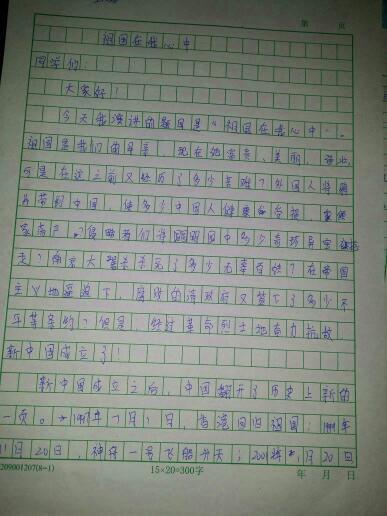 第 页
祖国在我心中
同学们:
大家好!
今天我演讲的题目是“祖国在我心中”。
祖国是我们的母亲,现在她富贵、美丽、
可是在这之前又经历了多少苦难?外国人将鸦
片带到中国,使多少中国人健康受
家荡产。?侵略者们将圆明园中多少奇珍异宝
走?南京大屠杀杀死了多少无辜百姓?在帝国
主义地逼迫下,腐败的清政府又签下了多少不
平等条约?但是,经过革命烈士地奋力抗敌,
新中国成立了!
新中国成立之后,中国翻开了历史上新的
一页。1997年7月1日,香港回归祖国;1999年
11月20日,神舟一号飞船升天;月20日
209001207(8-1)
15×20=300字
年 月 日